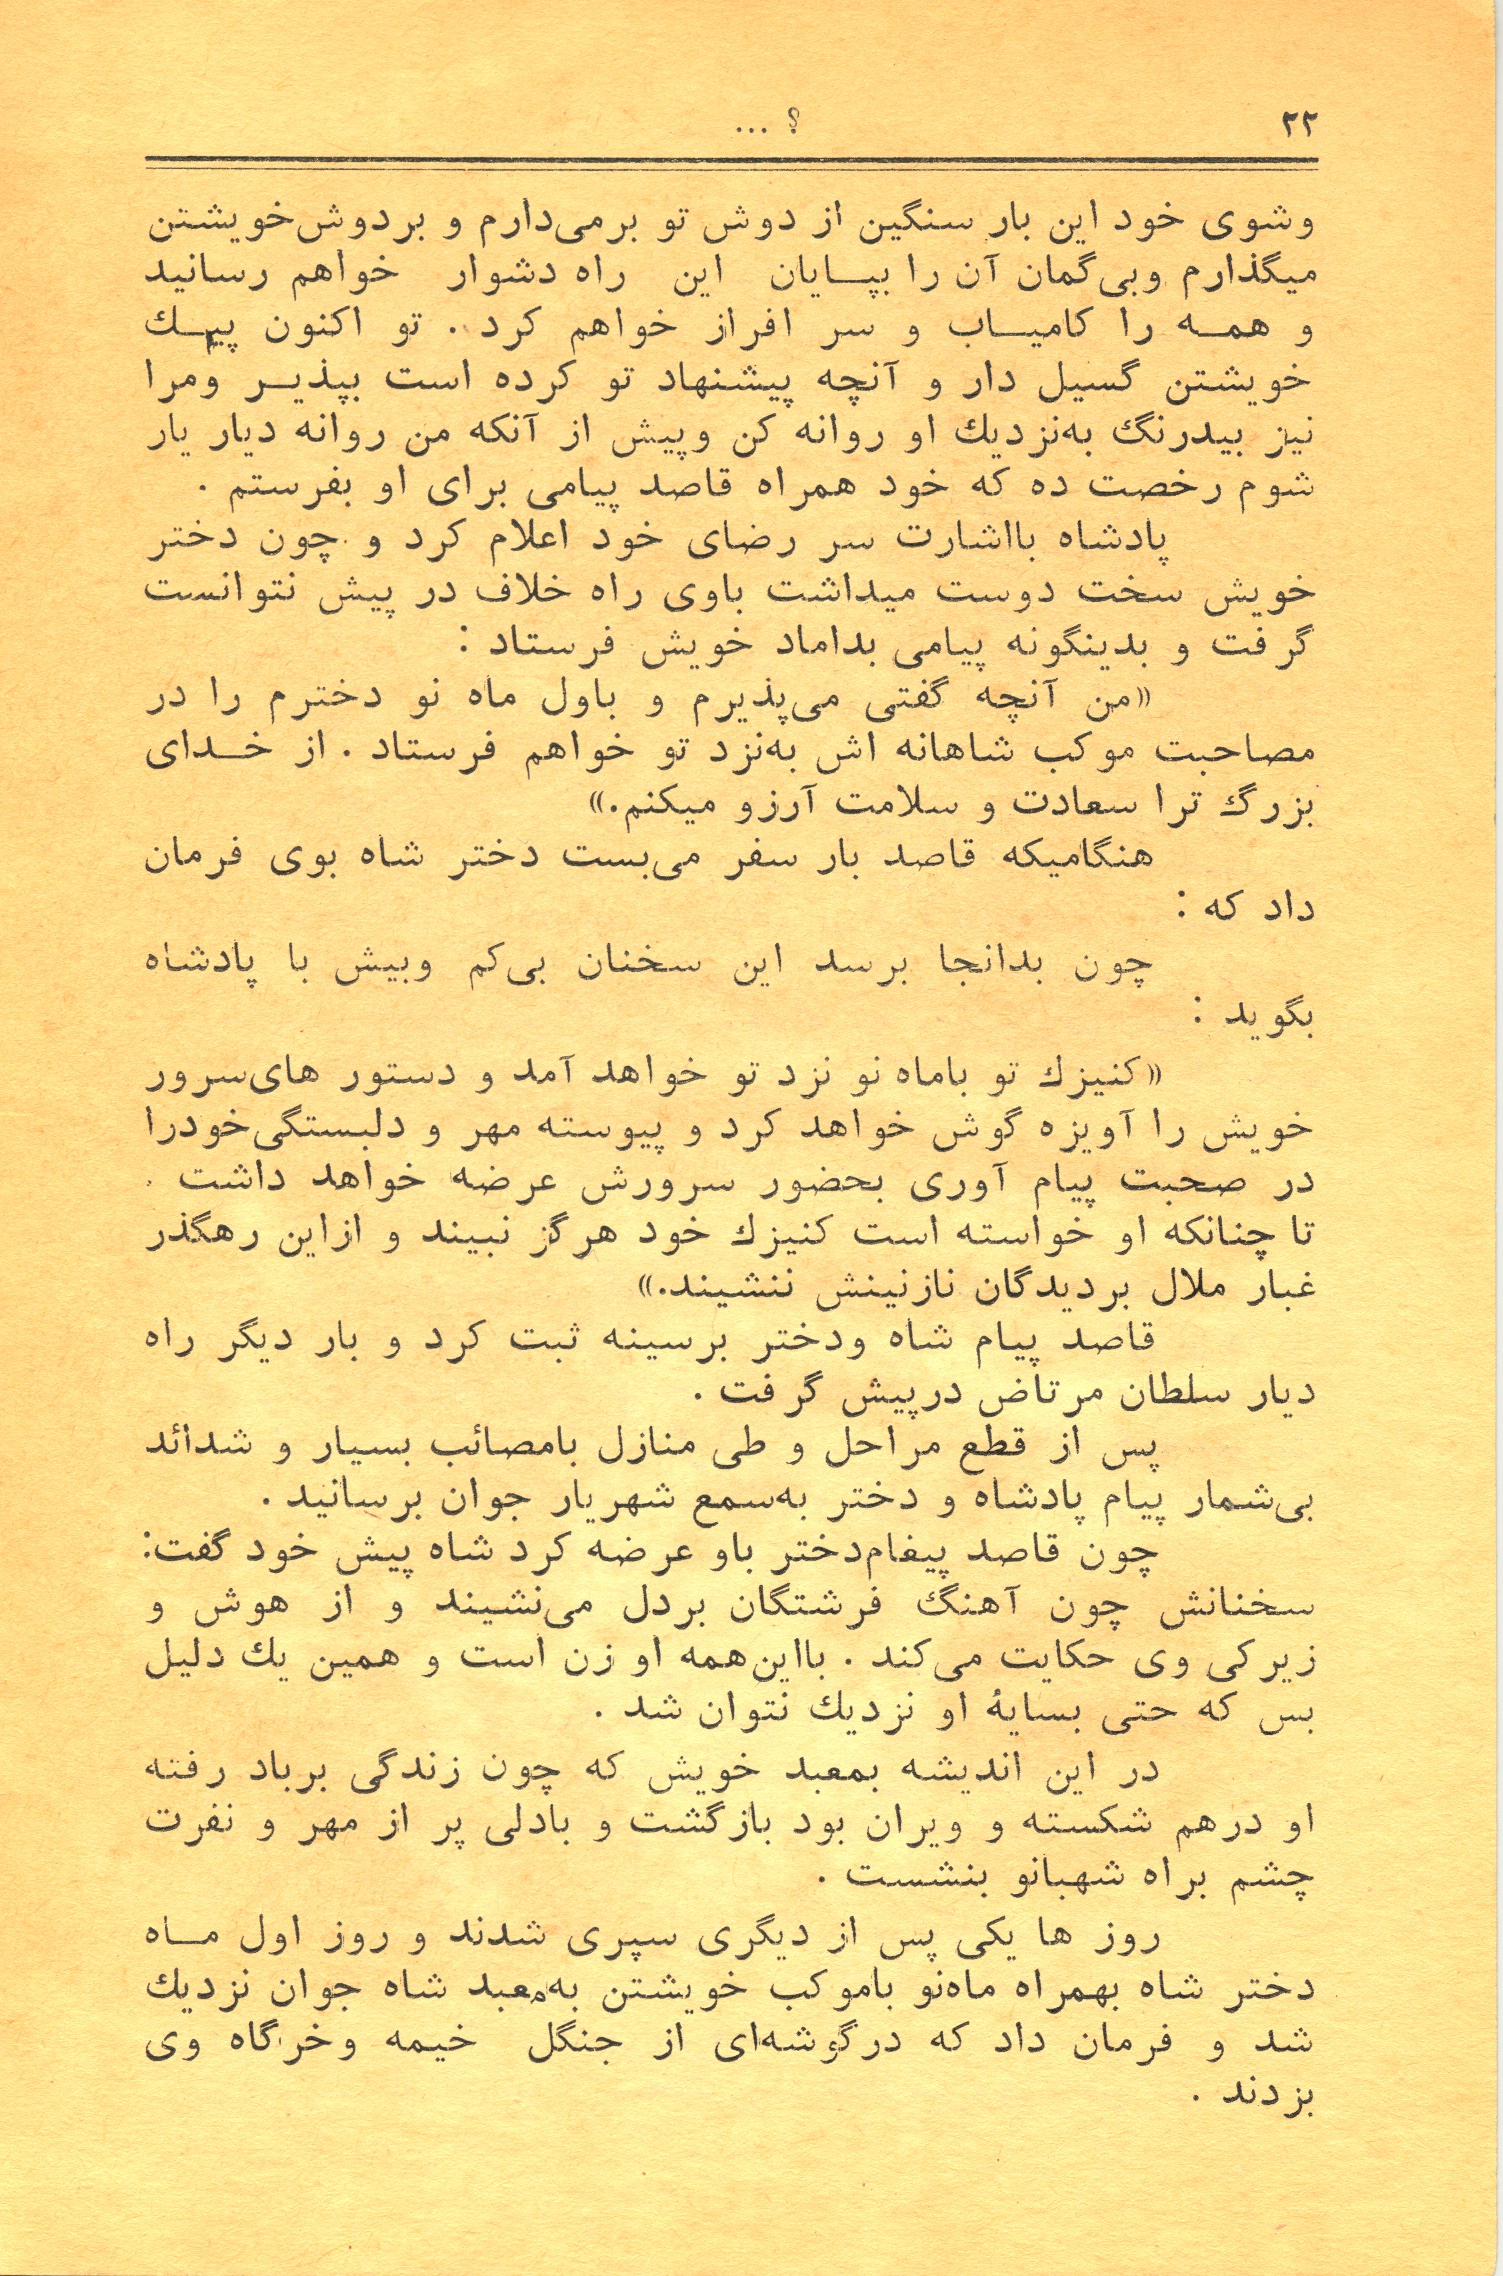 ۲۲
؟ ...
وشوی خود این بار سنگین از دوش تو برمی‌دارم و بردوش‌خویشتن
میگذارم وبی‌گمان آن را بپایان این راه دشوار خواهم رسانید
و همه را کامیاب و سر افراز خواهم کرد . تو اکنون پیک
خویشتن گسیل دار و آنچه پیشنهاد تو کرده است بپذیر ومرا
نیز بیدرنگ به‌نزدیك او روانه کن وپیش از آنکه من روانه دیار یار
شوم رخصت ده که خود همراه قاصد پیامی برای او بفرستم .
پادشاه بااشارت سر رضای خود اعلام کرد و چون دختر
خویش سخت دوست میداشت باوی راه خلاف در پیش نتوانست
گرفت و بدینگونه پیامی بداماد خویش فرستاد :
«من آنچه گفتی می‌پذیرم و باول ماه نو دخترم را در
مصاحبت موکب شاهانه اش به‌نزد تو خواهم فرستاد . از خدای
بزرگ ترا سعادت و سلامت آرزو میکنم.»
هنگامیکه قاصد بار سفر می‌بست دختر شاه بوی فرمان
داد که :
چون بدانجا برسد این سخنان بی‌کم وبیش با پادشاه
بگوید :
«کنیزك تو باماه نو نزد تو خواهد آمد و دستور های‌سرور
خویش را آویزه گوش خواهد کرد و پیوسته مهر و دلبستگی‌خودرا
در صحبت پیام آوری بحضور سرورش عرضه خواهد داشت .
تا چنانکه او خواسته است کنیزك خود هرگز نبیند و ازاین رهگذر
غبار ملال بردیدگان نازنینش ننشیند.»
قاصد پیام شاه ودختر برسینه ثبت کرد و بار دیگر راه
دیار سلطان مرتاض درپیش گرفت .
پس از قطع مراحل و طی منازل بامصائب بسیار و شدائد
بی‌شمار پیام پادشاه و دختر به‌سمع شهریار جوان برسانید .
چون قاصد پیغام‌دختر باو عرضه کرد شاه پیش خود گفت:
سخنانش چون آهنگ فرشتگان بردل می‌نشیند و از هوش و
زیرکی وی حکایت می‌کند . بااین‌همه او زن است و همین یك دلیل
بس که حتی بسایهٔ او نزدیك نتوان شد .
در این اندیشه بمعبد خویش که چون زندگی برباد رفته
او درهم شکسته و ویران بود بازگشت و بادلی پر از مهر و نفرت
چشم براه شهبانو بنشست .
روز ها یکی پس از دیگری سپری شدند و روز اول ماه
دختر شاه بهمراه ماه‌نو باموکب خویشتن به‌معبد شاه جوان نزدیك
شد و فرمان داد که درگوشه‌ای از جنگل خیمه وخرگاه وی
بزدند .